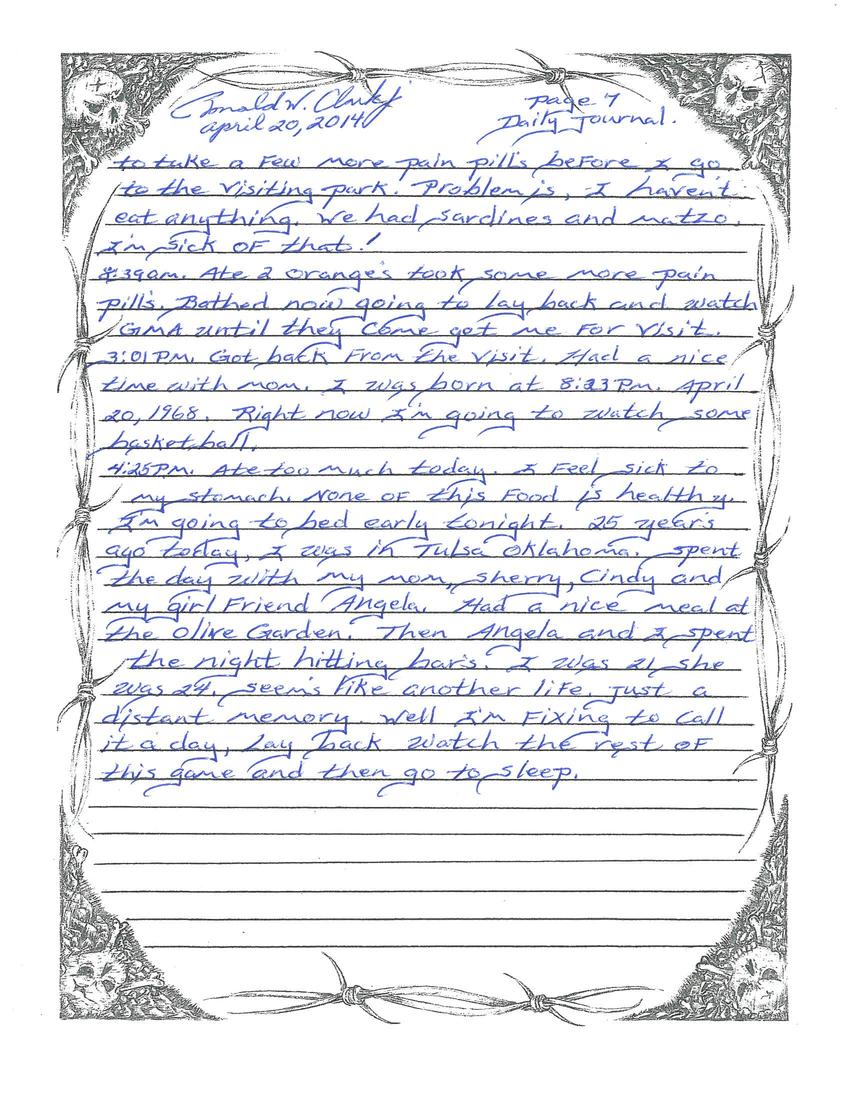 Ronald W. Clark Jr
Page 7
april 20, 2014
Daily Journal.
to take a Few more pain pill's beFore I go
to the visiting park. Problem is, I haven't
eat anything. We had sardines and matzo.
I'm sick OF that!
8:39am. Ate 2 orange's took some more pain
pill's. Bathed now going to lay back and watch
GMA until they come get me For visit.
3:01 PM. Got back From the visit. Had a nice
time with mom. I was born at 8:23 Pm. April
20, 1968. Right now I'm going to watch some
basketball.
4:25 PM. Ate too much today. I Feel sick to
my stomach. None OF this Food is healthy.
I'm going to bed early tonight. 25 year's
ago today, I was in Tulsa Oklahoma. spent
the day with my mom, sherry, Cindy and
my girl Friend Angela. Had a nice meal at
the Olive Garden. Then Angela and I spent
the night hitting bar's. I was 21, she
was 24. seem's like another life. Just a
distant memory. Well I'm Fixing to call
it a day, Lay back watch the rest OF
this game and then go to sleep.